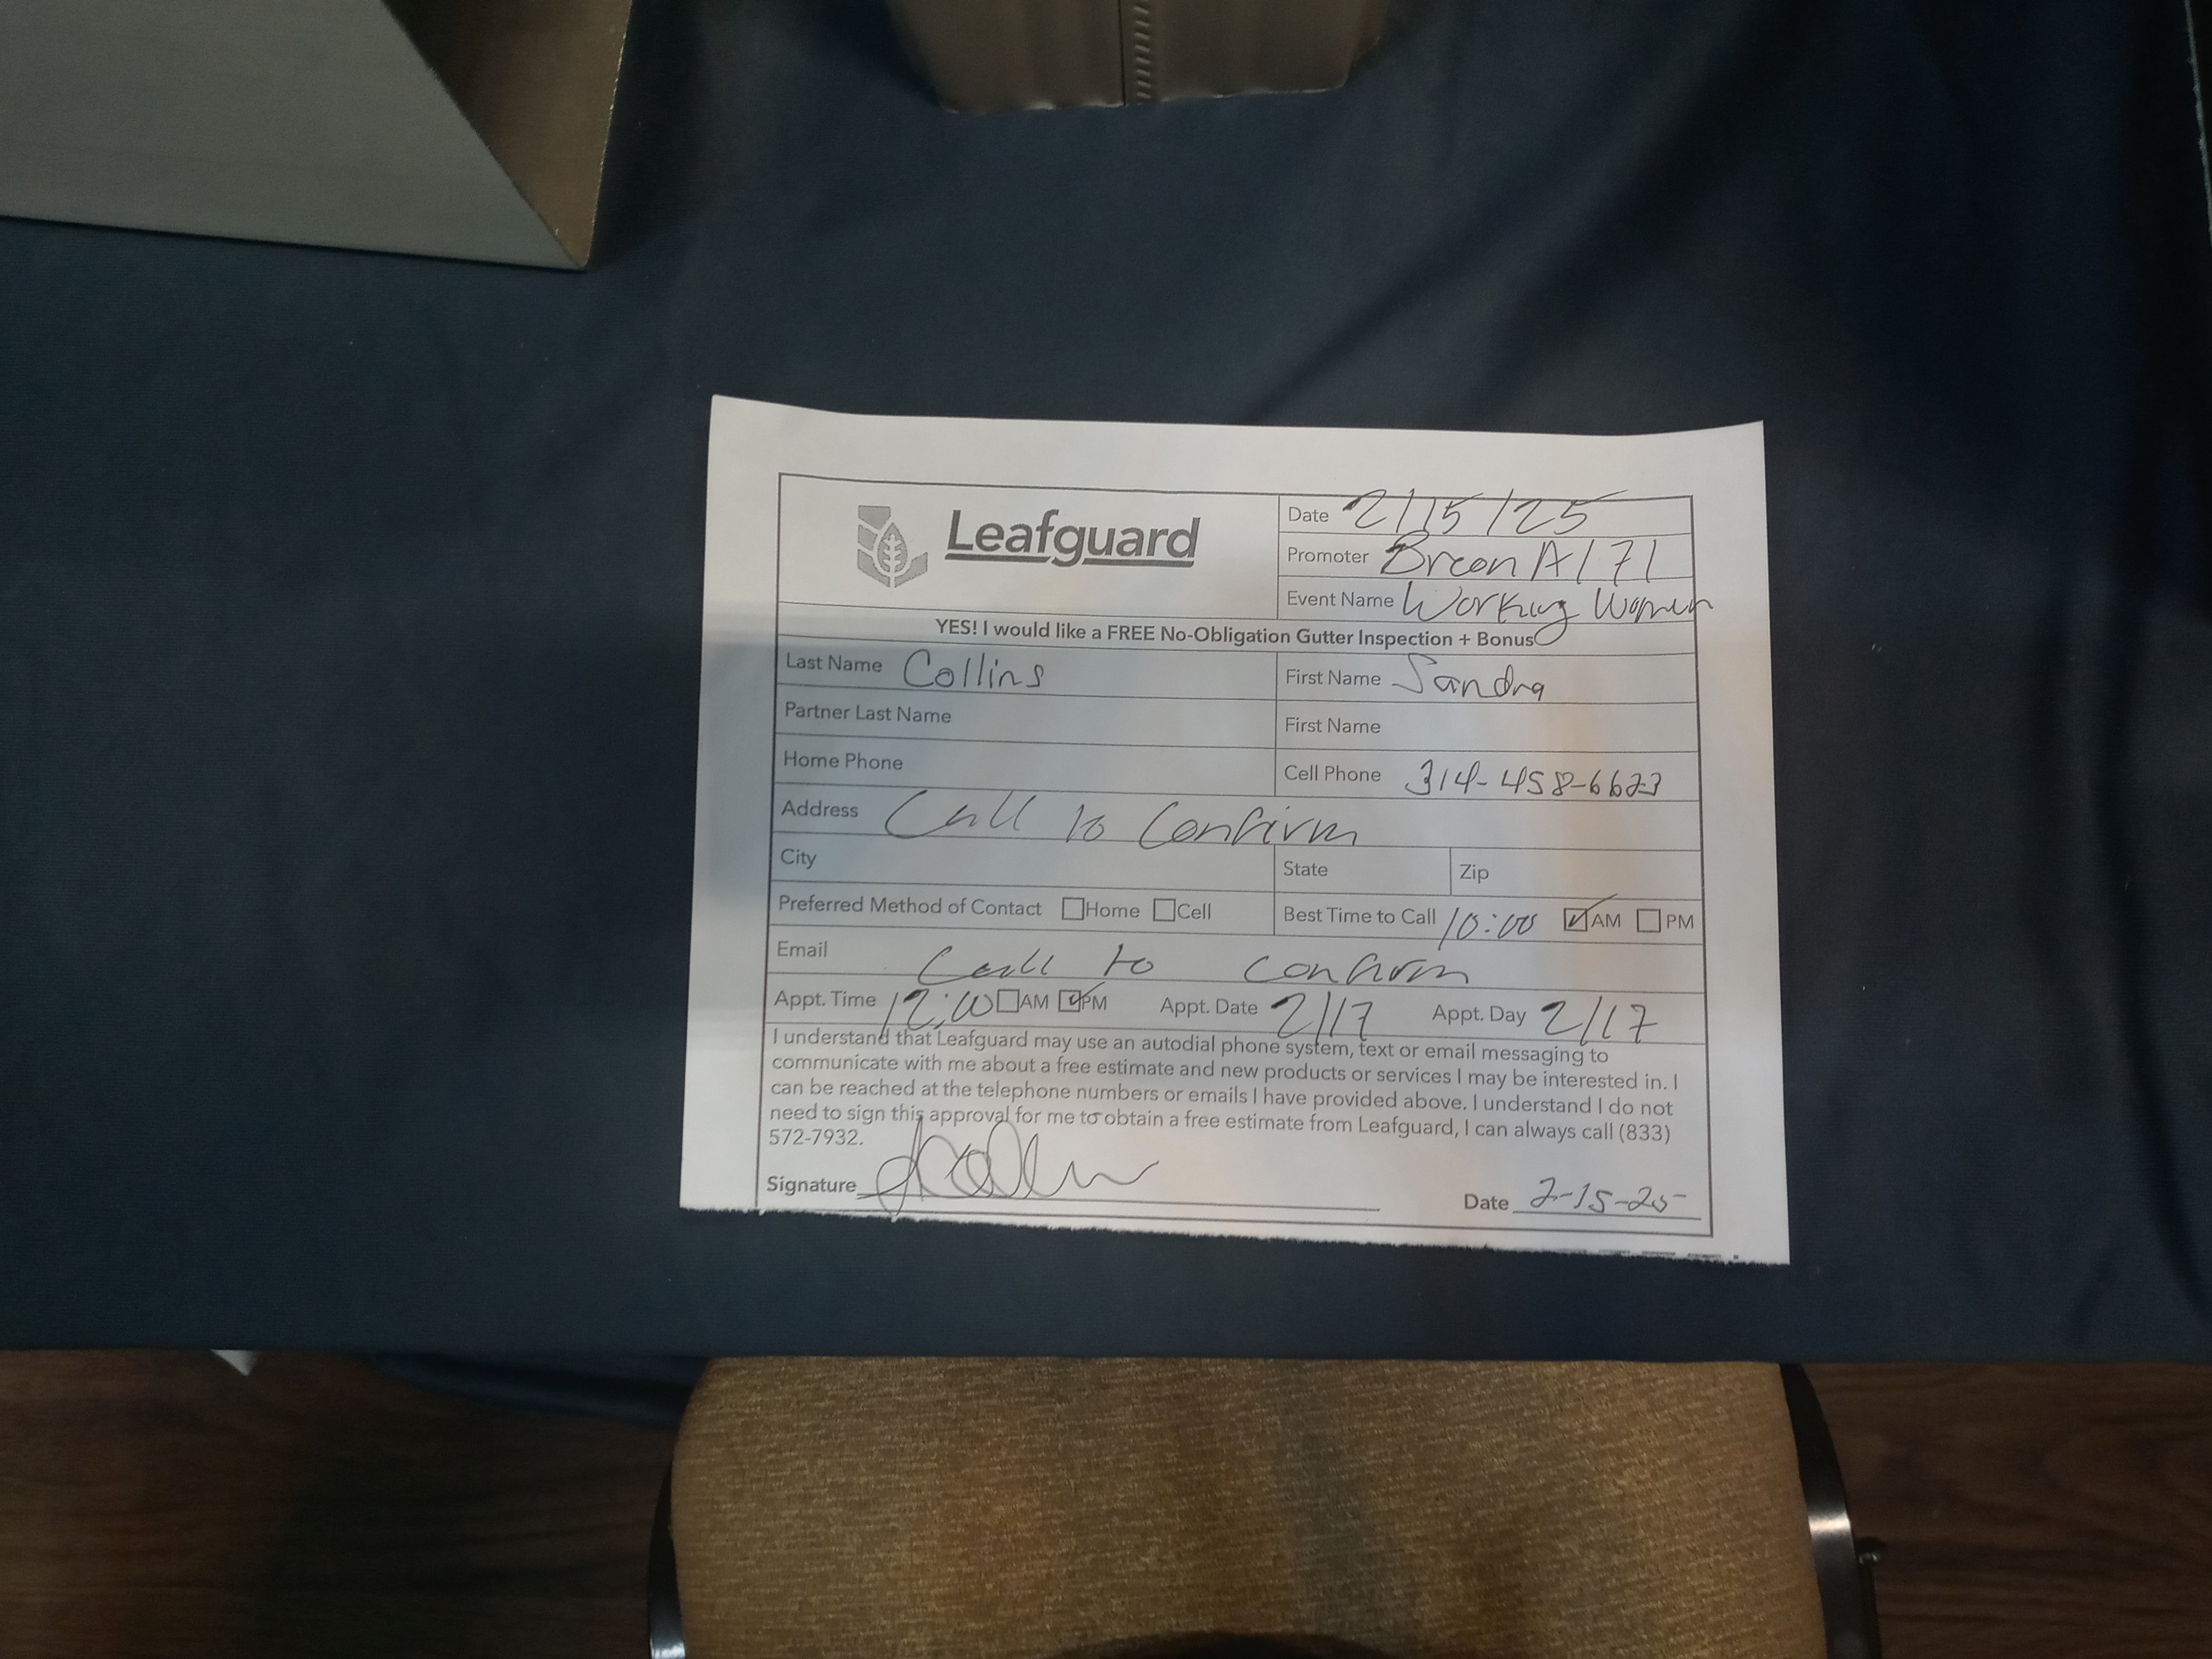 Leafguard
Date 2/15/25
Promoter Breon A171
Event Name Working Women
YES! I would like a FREE No-Obligation Gutter Inspection + Bonus
Last Name Collins First Name Sandra
Partner Last Name First Name
Home Phone Cell Phone 314-458-6623
Address Call to Confirm
City State Zip
Preferred Method of Contact Home Cell Best Time to Call 10:00 AM PM
Email Call to confirm
Appt. Time 12:00 AM PM Appt. Date 2/17 Appt. Day 2/17
I understand that Leafguard may use an autodial phone system, text or email messaging to
communicate with me about a free estimate and new products or services I may be interested in. I
can be reached at the telephone numbers or emails I have provided above. I understand I do not
need to sign this approval for me to obtain a free estimate from Leafguard, I can always call (833)
572-7932.
Signature Date 2-15-25